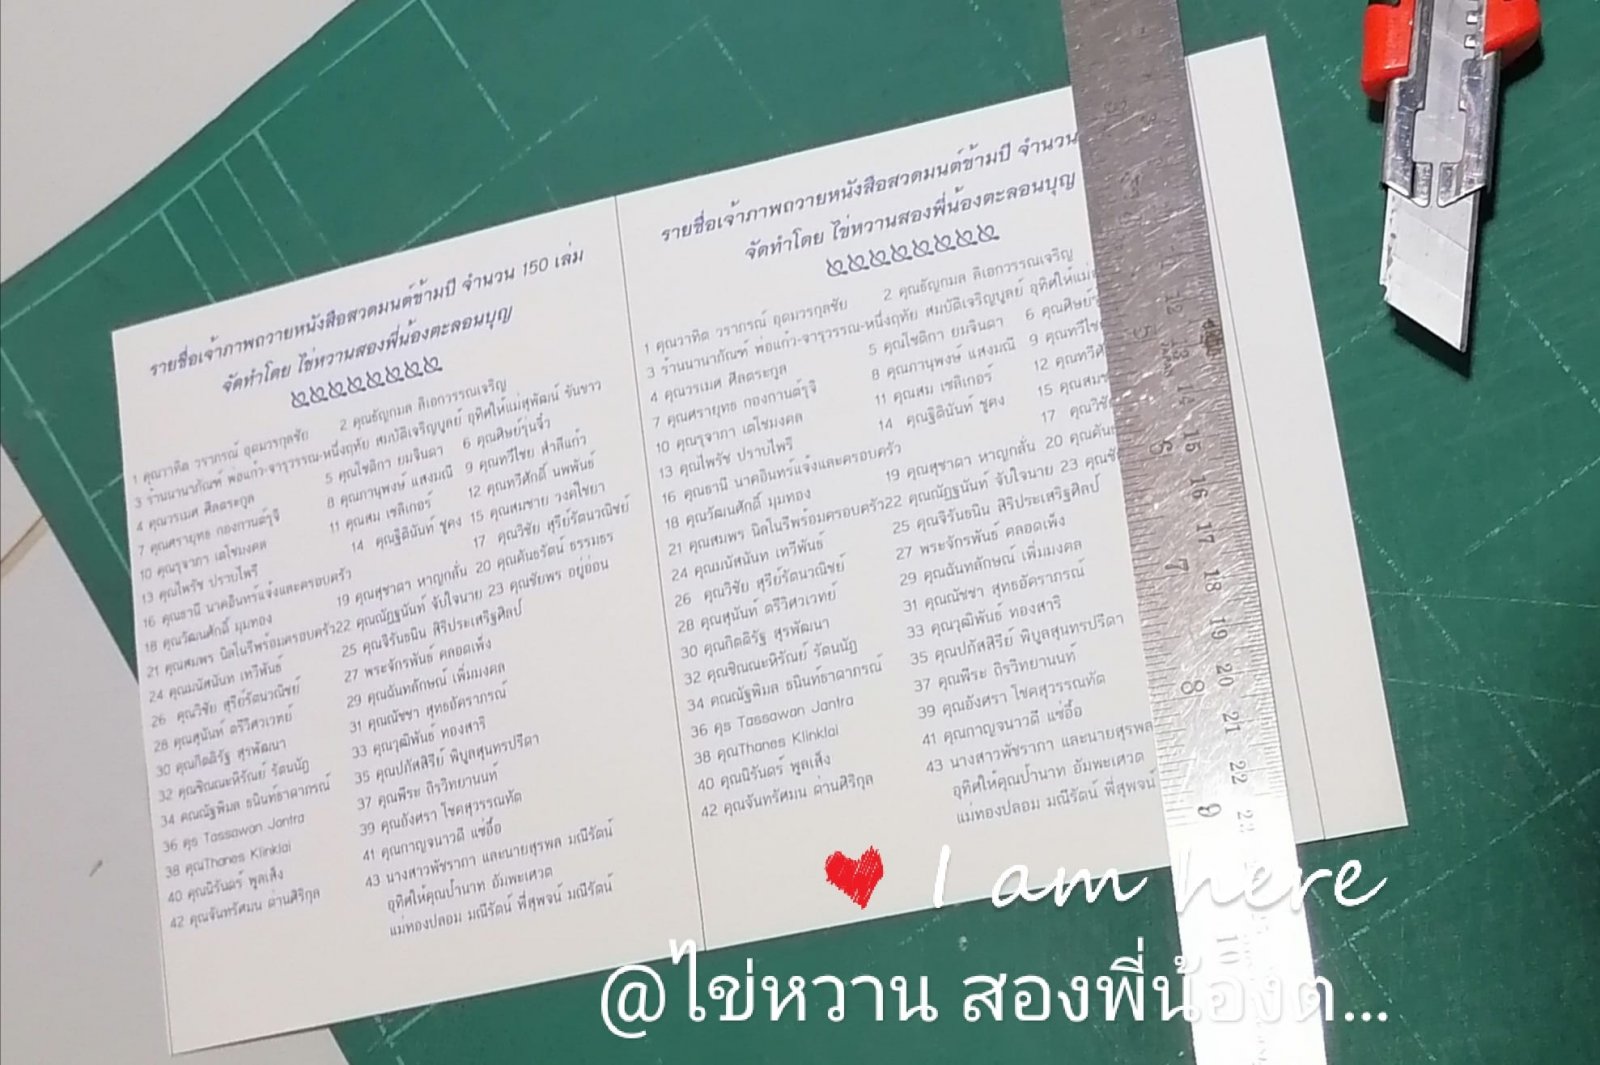 รายชื่อเจ้าภาพถวายหนังสือสวดมนต์ข้ามปี จำนวน 150 เล่ม
จัดทำโดย ไข่หวานสองพี่น้องตะลอนบุญ
1 คุณวาทิต วราภรณ์ อุดมวรกุลชัย 2 คุณธัญกมล ลิเอกวรรณเจริญ
3 ร้านนานาภัณฑ์ พ่อแก้ว-จารุวรรณ-หนึ่งฤทัย สมบัติเจริญบูลย์ อุทิศให้แม่สุพัฒน์ ขันขาว
4 คุณวรเมศ ศีลตระกูล 5 คุณโชติกา ยมจินดา 6 คุณศิษย์รุ่นจิ๋ว
7 คุณศรายุทธ กองกานต์รุจิ 8 คุณภานุพงษ์ แสงมณี 9 คุณทวีไชย สำลีแก้ว
10 คุณรุจาภา เตโชมงคล 11 คุณสม เซลิเกอร์ 12 คุณทวีศักดิ์ นพพันธ์
13 คุณไพรัช ปราบไพรี 14 คุณฐิตินันท์ ชูคง 15 คุณสมชาย วงค์ไชยา
16 คุณธานี นาคอินทร์แจ้งและครอบครัว 17 คุณวิชัย สุรีย์รัตนวณิชย์
18 คุณวัฒนศักดิ์ มุมทอง 19 คุณสุชาดา หาญกลั่น 20 คุณคันธรัตน์ ธรรมธร
21 คุณสมพร นิลโนรีพร้อมครอบครัว 22 คุณณัฏฐนันท์ จับใจนาย 23 คุณชัยพร อยู่อ่อน
24 คุณมนัสนันท เทวีพันธ์ 25 คุณจิรันธนิน สิริประเสริฐศิลป์
26 คุณวิชัย สุรีย์รัตนวณิชย์ 27 พระจักรพันธ์ คลอดเพ็ง
28 คุณสุนันท์ ตรีวิศวเวทย์ 29 คุณฉันทลักษณ์ เพิ่มมงคล
30 คุณกิตติรัฐ สุรพัฒนา 31 คุณณัชชา สุทธอัคราภรณ์
32 คุณชิณณะหิรัณย์ รัตนนัฏ 33 คุณวุฒิพันธ์ ทองสาริ
34 คณณัฐพิมล ธนินท์ธาดาภรณ์ 35 คุณปภัสสิรีย์ พิบูลสุนทรปรีดา
36 คุธ Tassawan Jantra 37 คุณพีระ ถิรวิทยานนท์
38 คุณThanes Klinklai 39 คุณอังศรา โชคสุวรรณทัต
40 คุณนิรันดร์ พูลเส็ง 41 คุณกาญจนาวดี แซ่อื้อ
42 คุณจันทรัศมน ด่านศิริกุล 43 นางสาวพัชราภา และนายสุรพล มณีรัตน์
อุทิศให้คุณป้านาท อัมพะเศวต
แม่ทองปลอม มณีรัตน์ พี่สุพจน์ มณีรัตน์
รายชื่อเจ้าภาพถวายหนังสือสวดมนต์ข้ามปี จำนวน
จัดทำโดย ไข่หวานสองพี่น้องตะลอนบุญ
1 คุณวาทิต วราภรณ์ อุดมวรกุลชัย 2 คุณธัญกมล ลิเอกวรรณเจริญ
3 ร้านนานาภัณฑ์ พ่อแก้ว-จารุวรรณ-หนึ่งฤทัย สมบัติเจริญบูลย์ อุทิศให้แม่
4 คุณวรเมศ ศีลตระกูล 5 คุณโชติกา ยมจินดา 6 คุณศิษย์
7 คุณศรายุทธ กองกานต์รุจิ 8 คุณภานุพงษ์ แสงมณี 9 คุณทวีไช
10 คุณรุจาภา เตโชมงคล 11 คุณสม เซลิเกอร์ 12 คุณทวีศั
13 คุณไพรัช ปราบไพรี 14 คุณฐิตินันท์ ชูคง 15 คุณสม
16 คุณธานี นาคอินทร์แจ้งและครอบครัว 17 คุณวิชั
18 คุณวัฒนศักดิ์ มุมทอง 19 คุณสุชาดา หาญกลั่น 20 คุณคัน
21 คุณสมพร นิลโนรีพร้อมครอบครัว 22 คุณณัฏฐนันท์ จับใจนาย 23 คุณชั
24 คุณมนัสนันท เทวีพันธ์ 25 คุณจิรันธนิน สิริประเสริฐศิลป์
26 คุณวิชัย สุรีย์รัตนวณิชย์ 27 พระจักรพันธ์ คลอดเพ็ง
28 คุณสุนันท์ ตรีวิศวเวทย์ 29 คุณฉันทลักษณ์ เพิ่มมงคล
30 คุณกิตติรัฐ สุรพัฒนา 31 คุณณัชชา สุทธอัคราภรณ์
32 คุณชิณณะหิรัณย์ รัตนนัฏ 33 คุณวุฒิพันธ์ ทองสาริ
34 คณณัฐพิมล ธนินท์ธาดาภรณ์ 35 คุณปภัสสิรีย์ พิบูลสุนทรปรีดา
36 คุธ Tassawan Jantra 37 คุณพีระ ถิรวิทยานนท์
38 คุณThanes Klinklai 39 คุณอังศรา โชคสุวรรณทัต
40 คุณนิรันดร์ พูลเส็ง 41 คุณกาญจนาวดี แซ่อื้อ
42 คุณจันทรัศมน ด่านศิริกุล 43 นางสาวพัชราภา และนายสุรพล
อุทิศให้คุณป้านาท อัมพะเศวต
แม่ทองปลอม มณีรัตน์ พี่สุพจน์
I am here
@ไข่หวาน สองพี่น้องต...